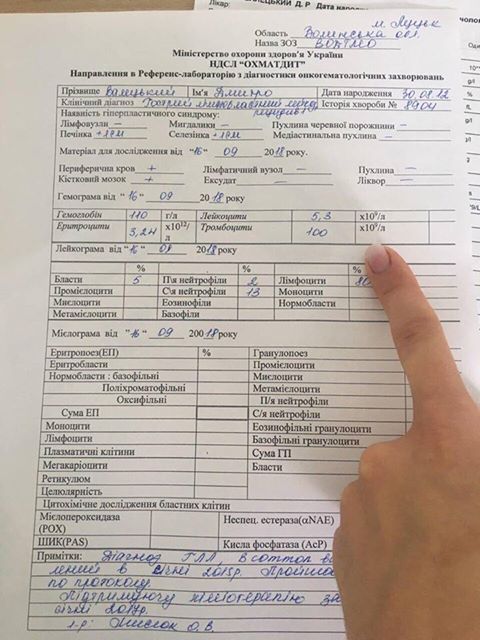 Лікар:
ЕЦЬКИЙ Д. Р Дата народ
м. Луцьк
Область Волинська обл.
Назва ЗОЗ ВОДТМО
Міністерство охорони здоров'я України
НДСЛ "ОХМАТДИТ"
Направлення в Референс-лабораторію з діагностики онкогематологічних захворювань
Прізвище Ім'я Дмитро Дата народження 30.08.12
Клінічний діагноз Гострий лімфобластний Історія хвороби № 8904
Наявність гіперпластичного синдрому: рецидив
Лімфовузли – Мигдалики – Пухлина черевної порожнини –
Печінка +1см Селезінка +1см Медіастинальна пухлина –
Матеріал для дослідження від "16" 09 2018 року.
Периферична кров + Лімфатичний вузол – Пухлина –
Кістковий мозок + Ексудат – Ліквор –
Гемограма від "16" 09 2018 року
Гемоглобін 110 г/л Лейкоцити 5,3 x10⁹/л
Еритроцити 3,24 x10¹²/л Тромбоцити 100 x10⁹/л
Лейкограма від "16" 09 2018 року
% % %
Бласти 5 П\я нейтрофіли 2 Лімфоцити 80
Промієлоцити С\я нейтрофіли 13 Моноцити
Мієлоцити Еозинофіли Нормобласти
Метамієлоцити Базофіли
Мієлограма від "16" 09 200 18 року
Еритропоез(ЕП) % Гранулопоез
Еритробласти Промієлоцити
Нормобласти : базофільні Мієлоцити
Поліхроматофільні Метамієлоцити
Оксифільні П/я нейтрофіли
Сума ЕП С/я нейтрофіли
Моноцити Еозинофільні гранулоцити
Лімфоцити Базофільні гранулоцити
Плазматичні клітини Сума ГП
Мегакаріоцити Бласти
Ретикулюм
Целюлярність
Цитохімічне дослідження бластних клітин
Мієлопероксидаза (POX) Неспец. естераза(αNAE)
ШИК(PAS) Кисла фосфатаза (AcP)
Примітки: Діагноз ГЛЛ, В
лений в січні 2015р.
по протоколу.
Підтримуючу хіміотерапію за
січні 2017р.
л-р: